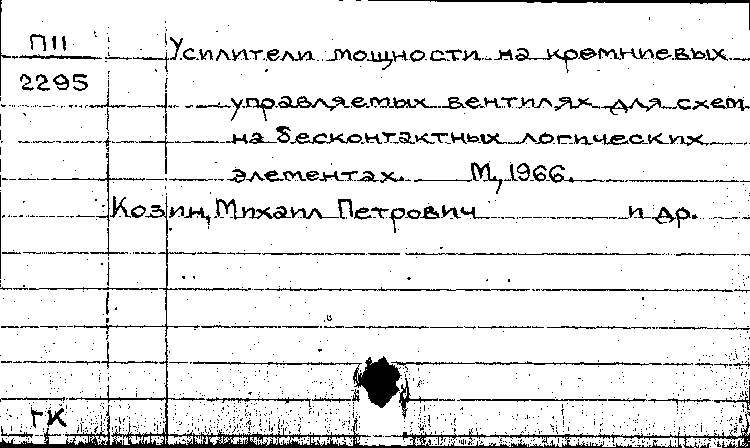 П11
2295
Усилители мощности на кремниевых
управляемых вентилях для схем
на бесконтактных логических
элементах. М., 1966.
Козин, Михаил Петрович и др.
ГК